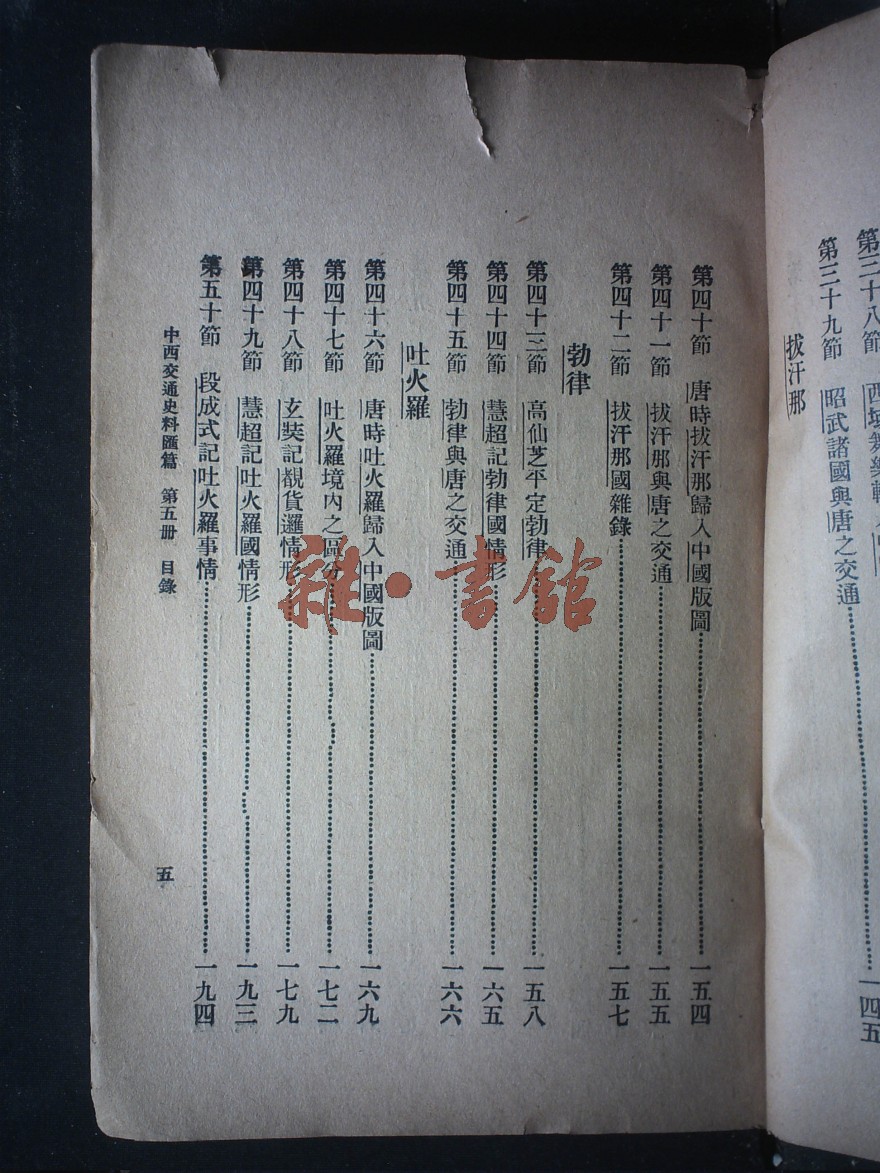 第三十八節　西域舞樂輸入中
第三十九節　昭武諸國與唐之交通……一四五
拔汗那
第四十節　唐時拔汗那歸入中國版圖……一五四
第四十一節　拔汗那與唐之交通……一五五
第四十二節　拔汗那國雜錄……一五七
勃律
第四十三節　高仙芝平定勃律……一五八
第四十四節　慧超記勃律國情形……一六五
第四十五節　勃律與唐之交通……一六六
吐火羅
第四十六節　唐時吐火羅歸入中國版圖……一六九
第四十七節　吐火羅境內之區分……一七二
第四十八節　玄奘記覩貨邏情形……一七九
第四十九節　慧超記吐火羅國情形……一九三
第五十節　段成式記吐火羅事情……一九四
中西交通史料匯篇　第五册　目錄　五
雜·書館